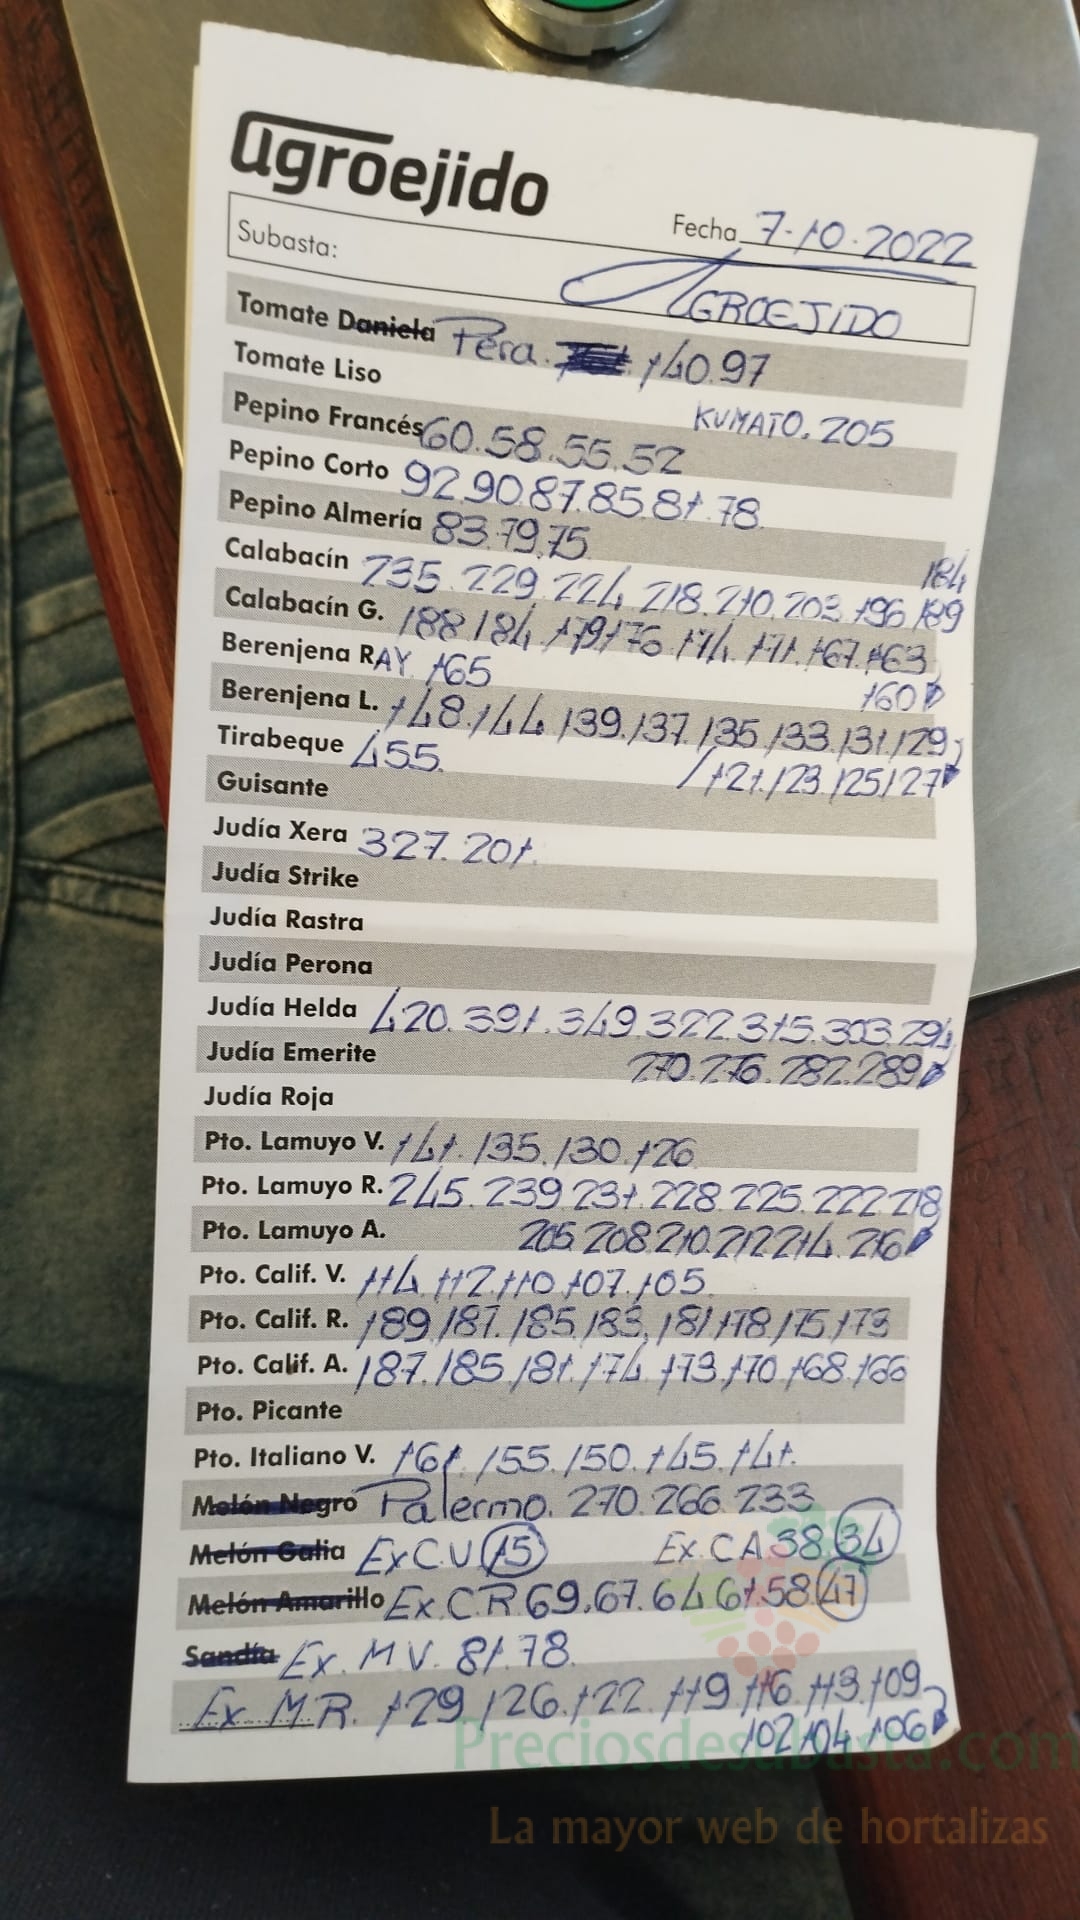 agroejido
Fecha 7-10-2022
Subasta: AGROEJIDO
Tomate Daniela Pera. 140.97
Tomate Liso
KUMATO. 205
Pepino Francés 60.58.55.52
Pepino Corto 92.90.87.85.81.78.
Pepino Almería 83.79.75
184
Calabacín 235.229.224.218.210.203.196.189
Calabacín G. 188.184.179.176.174.171.167.163
160
Berenjena RAY 165
Berenjena L. 148.144.139.137.135.133.131.129
121.123.125.127
Tirabeque 455.
Guisante
Judía Xera 327.201.
Judía Strike
Judía Rastra
Judía Perona
Judía Helda 420.391.349.322.315.303.294
270.276.282.289
Judía Emerite
Judía Roja
Pto. Lamuyo V. 141.135.130.126
Pto. Lamuyo R. 245.239.231.228.225.222.218
205.208.210.212.214.216
Pto. Lamuyo A.
Pto. Calif. V. 114.112.110.107.105.
Pto. Calif. R. 189.187.185.183.181.178.175.173
Pto. Calif. A. 187.185.181.174.173.170.168.166
Pto. Picante
Pto. Italiano V. 161.155.150.145.141.
Melón Negro Palermo. 270.266.233
Melón Galia Ex C.V. 15 Ex. C A 38.34
Melón Amarillo Ex. C.R. 69.67.64.61.58.47
Sandía Ex. M V. 81.78.
Ex M.R. 129.126.122.119.116.113.109
102.104.106
Preciosdesubasta.com
La mayor web de hortalizas